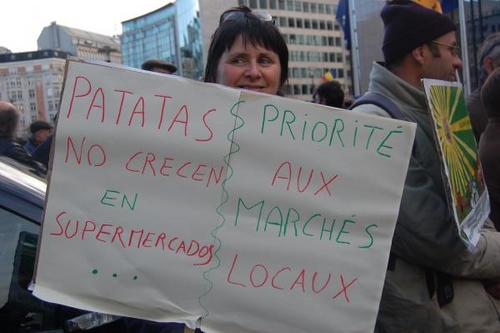 PATATAS
NO CRECEN
EN
SUPERMERCADOS
...
PRIORITÉ
AUX
MARCHÉS
LOCAUX